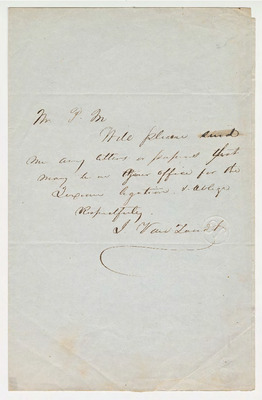 Mr P. M.
Will please send
me any letters or papers that
may be in your office for the
Texian legation & oblige
Respectfully
I Van Zandt